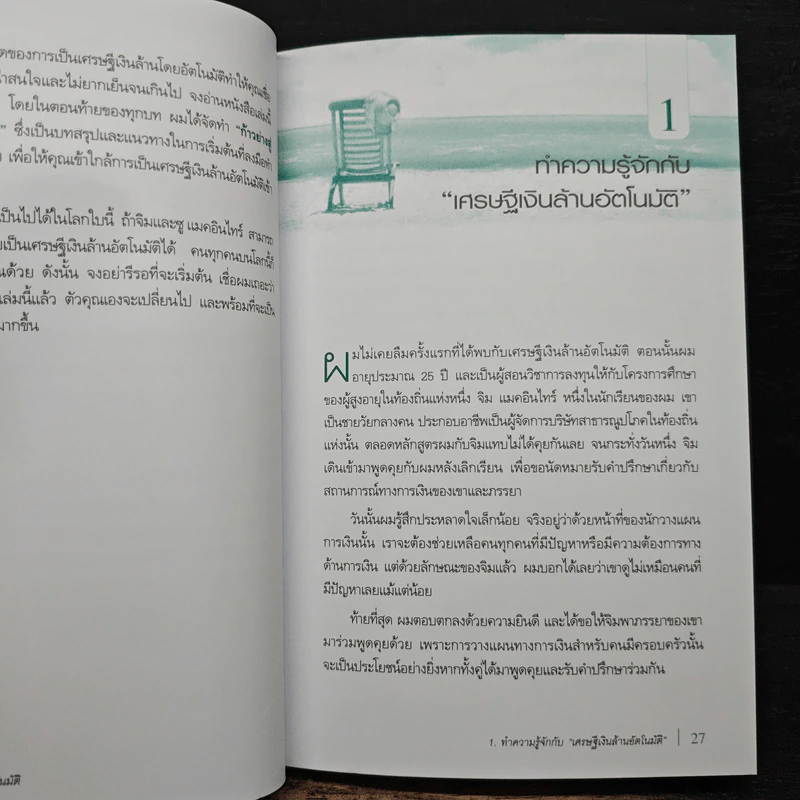 ดของการเป็นเศรษฐีเงินล้านโดยอัตโนมัติทำให้คุณเชื่อ
าสนใจและไม่ยากเย็นจนเกินไป จงอ่านหนังสือเล่มนี้
โดยในตอนท้ายของทุกบท ผมได้จัดทำ “ก้าวย่างสู่
” ซึ่งเป็นบทสรุปและแนวทางในการเริ่มต้นที่ลงมือทำ
เพื่อให้คุณเข้าใกล้การเป็นเศรษฐีเงินล้านอัตโนมัติเข้า
เป็นไปได้ในโลกใบนี้ ถ้าจิมและซู แมคอินไทร์ สามารถ
ยเป็นเศรษฐีเงินล้านอัตโนมัติได้ คนทุกคนบนโลกนี้ก็
นด้วย ดังนั้น จงอย่ารีรอที่จะเริ่มต้น เชื่อผมเถอะว่า
เล่มนี้แล้ว ตัวคุณเองจะเปลี่ยนไป และพร้อมที่จะเป็น
มากขึ้น
นมัติ
1
ทำความรู้จักกับ
“เศรษฐีเงินล้านอัตโนมัติ”
ผมไม่เคยลืมครั้งแรกที่ได้พบกับเศรษฐีเงินล้านอัตโนมัติ ตอนนั้นผม
อายุประมาณ 25 ปี และเป็นผู้สอนวิชาการลงทุนให้กับโครงการศึกษา
ของผู้สูงอายุในท้องถิ่นแห่งหนึ่ง จิม แมคอินไทร์ หนึ่งในนักเรียนของผม เขา
เป็นชายวัยกลางคน ประกอบอาชีพเป็นผู้จัดการบริษัทสาธารณูปโภคในท้องถิ่น
แห่งนั้น ตลอดหลักสูตรผมกับจิมแทบไม่ได้คุยกันเลย จนกระทั่งวันหนึ่ง จิม
เดินเข้ามาพูดคุยกับผมหลังเลิกเรียน เพื่อขอนัดหมายรับคำปรึกษาเกี่ยวกับ
สถานการณ์ทางการเงินของเขาและภรรยา
วันนั้นผมรู้สึกประหลาดใจเล็กน้อย จริงอยู่ว่าด้วยหน้าที่ของนักวางแผน
การเงินนั้น เราจะต้องช่วยเหลือคนทุกคนที่มีปัญหาหรือมีความต้องการทาง
ด้านการเงิน แต่ด้วยลักษณะของจิมแล้ว ผมบอกได้เลยว่าเขาดูไม่เหมือนคนที่
มีปัญหาเลยแม้แต่น้อย
ท้ายที่สุด ผมตอบตกลงด้วยความยินดี และได้ขอให้จิมพาภรรยาของเขา
มาร่วมพูดคุยด้วย เพราะการวางแผนทางการเงินสำหรับคนมีครอบครัวนั้น
จะเป็นประโยชน์อย่างยิ่งหากทั้งคู่ได้มาพูดคุยและรับคำปรึกษาร่วมกัน
1. ทำความรู้จักกับ “เศรษฐีเงินล้านอัตโนมัติ” | 27